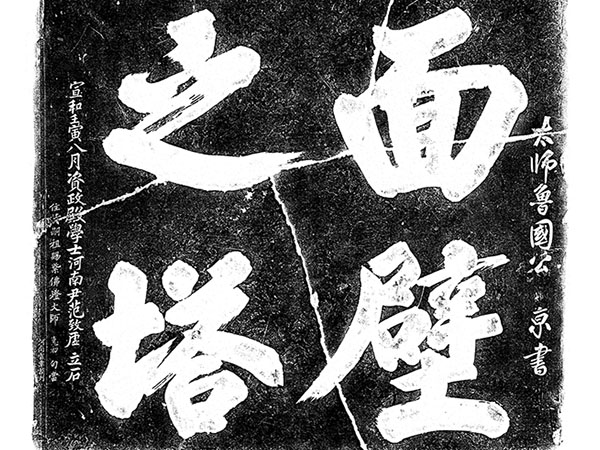 太師魯國公 京書
面壁
之塔
宣和壬寅八月資政殿學士河南尹范致虛立石
住 嗣祖賜紫佛燈大師 句當